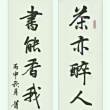 茶亦醉人
書能香我
丙申